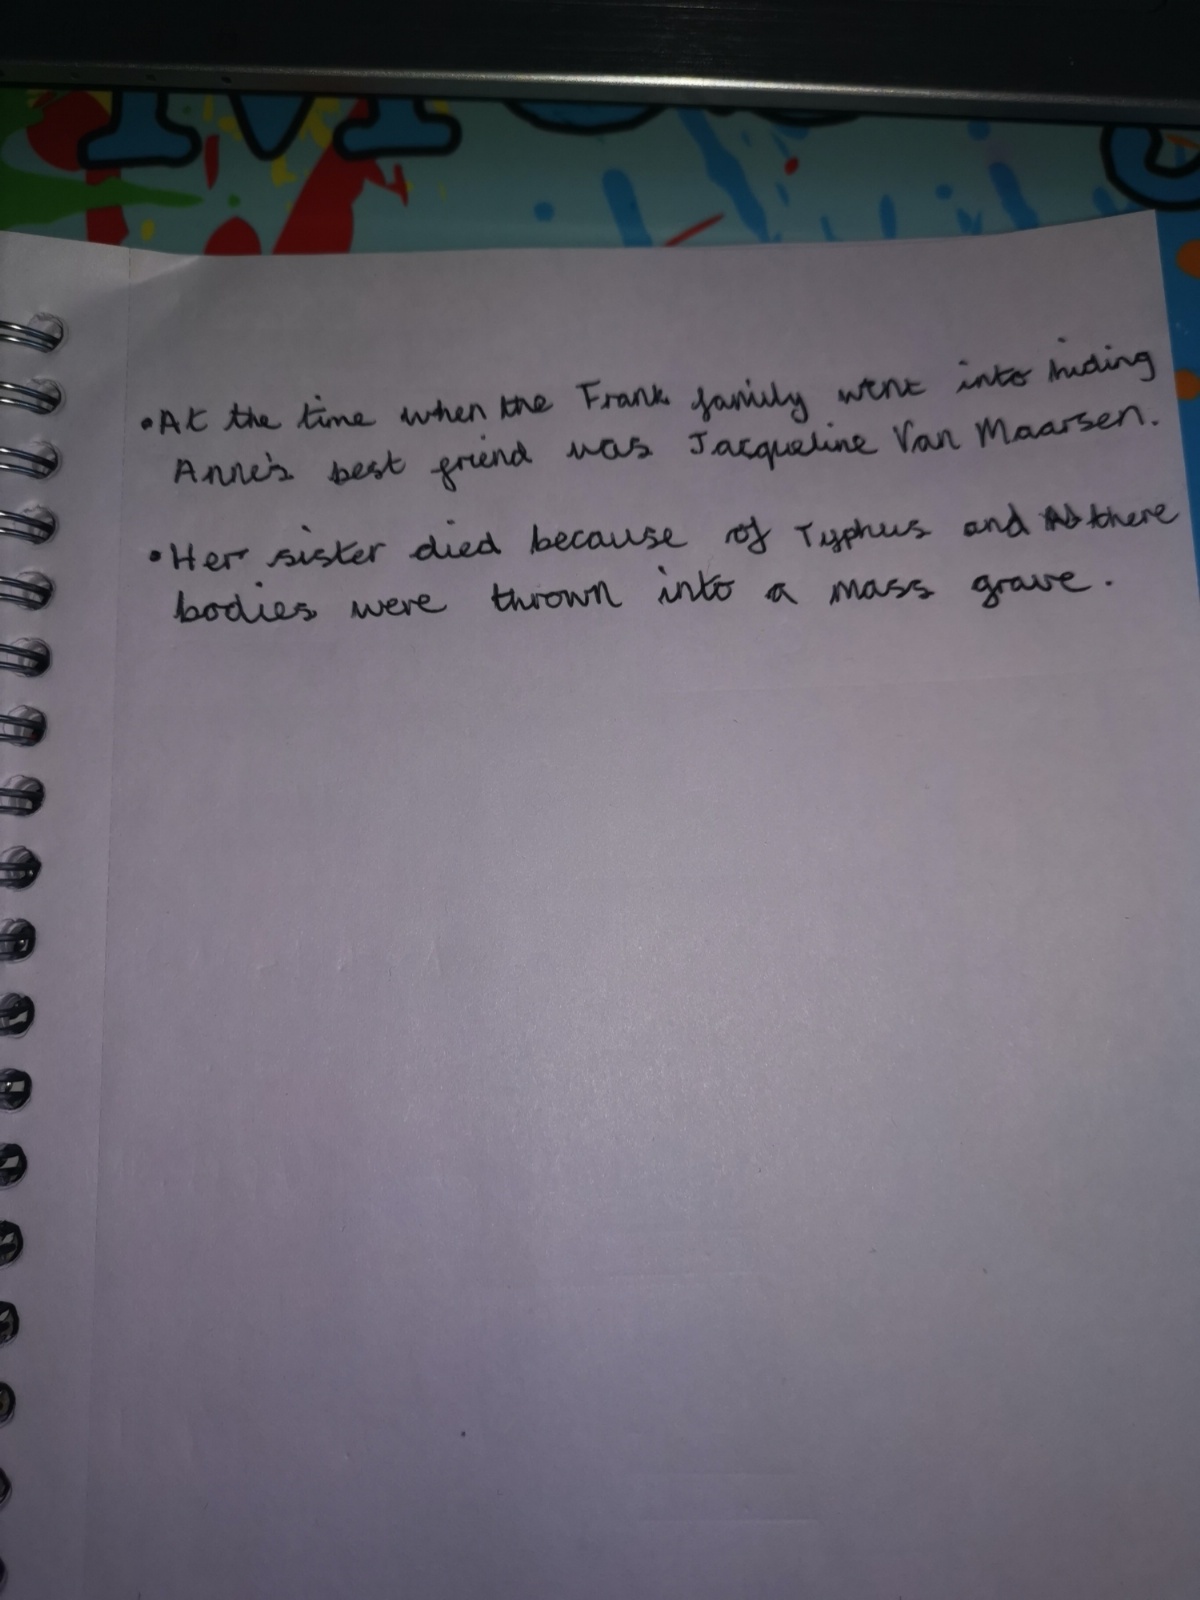 •At the time when the Frank family went into hiding
Anne's best friend was Jacqueline Van Maarsen.
•Her sister died because of Typhus and there
bodies were thrown into a mass grave.